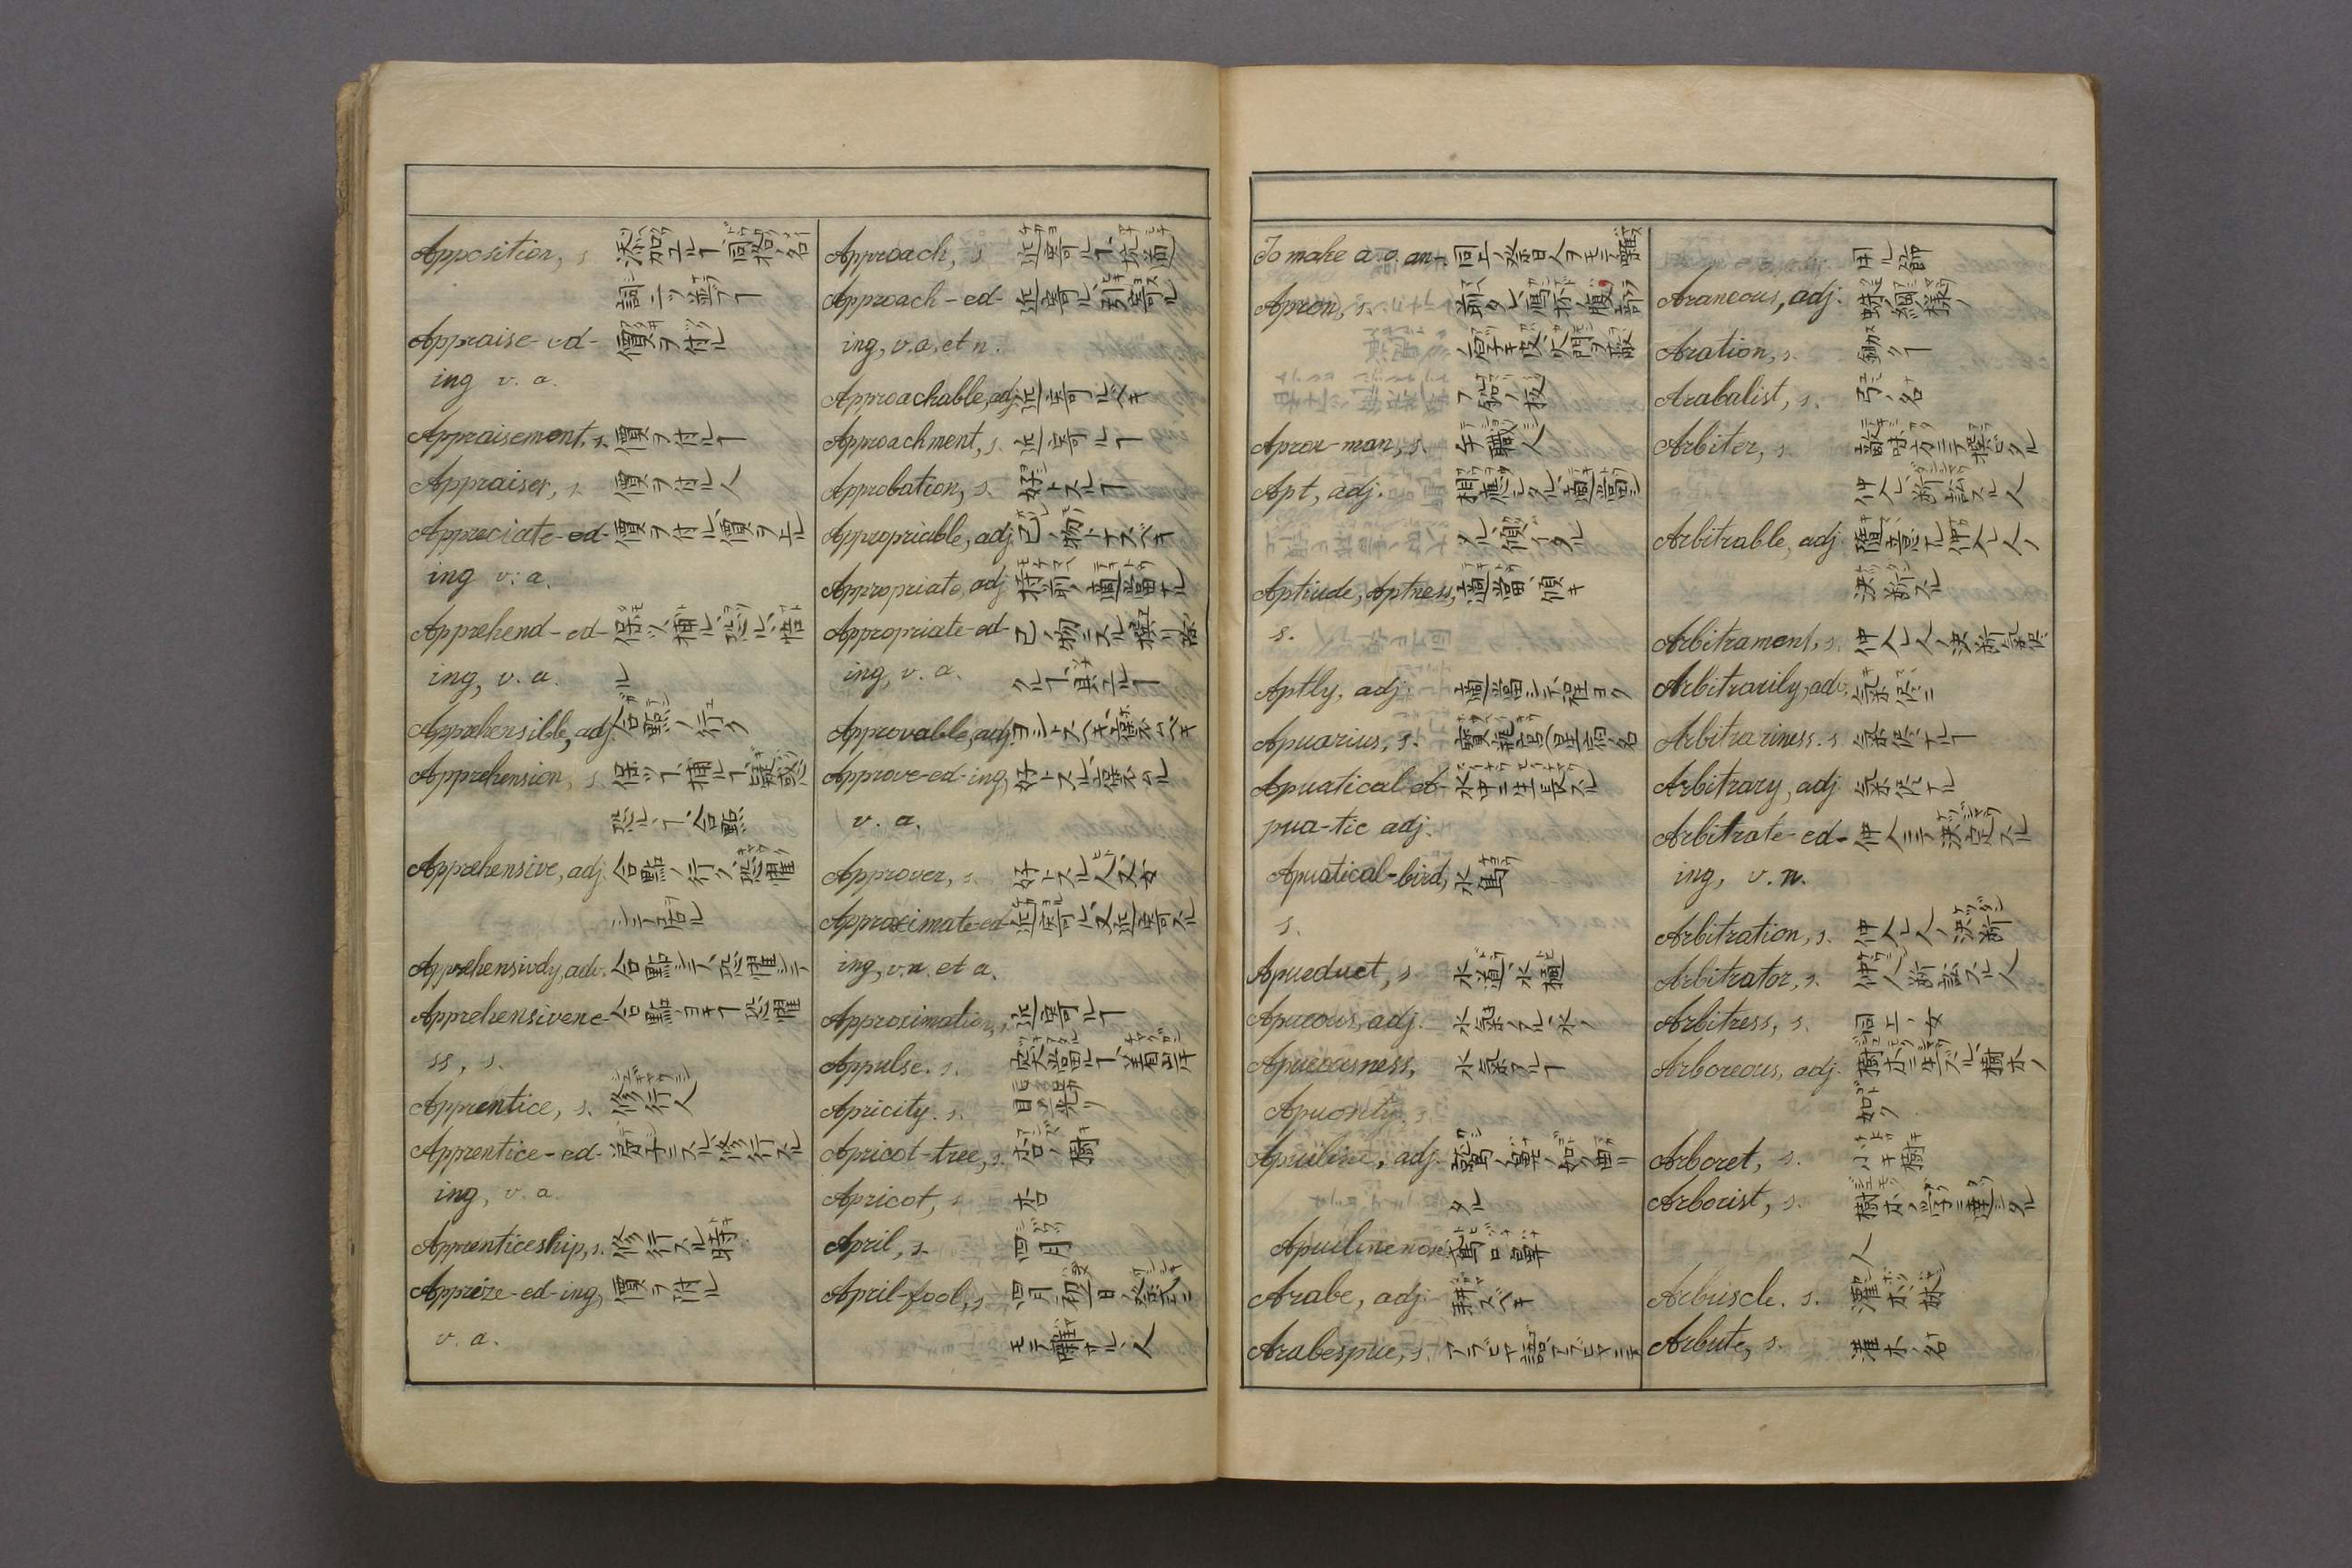 Apposition, s. 添加エルヿ、同格ノ名
詞二ツ並ブヿ
Appraise-ed- 價ヲ付ル
ing v. a.
Appraisement, s. 價ヲ付ルヿ
Appraiser, s. 價ヲ付ル人
Appreciate-ed- 價ヲ付ル、價ヲ上ル
ing v. a.
Apprehend-ed- 保ツ、捕ル、恐ル、悟
ing, v. a. ル
Apprehensible, adj. 合點ノ行ク
Apprehension, s. 保ツヿ、捕ルヿ、疑惑
恐ルヽヿ、合點
Apprehensive, adj. 合點ノ行ク、恐懼
シテ居ル
Apprehensively, adv. 合點シテ、恐懼シテ
Apprehensivene- 合點ノヨキヿ、恐懼
ss, s.
Apprentice, s. 修行人
Apprentice-ed- 弟子ニスル、修行スル
ing, v. a.
Apprenticeship, s. 修行スル時
Apprize-ed-ing, 價ヲ附ル
v. a.
Approach, s. 近寄ルヿ、坑道
Approach-ed- 近寄ル、引寄スル
ing, v. a. et n.
Approachable, adj. 近寄ルベキ
Approachment, s. 近寄ルヿ
Approbation, s. 好トスルヿ
Appropriable, adj. 己ノ物トナスベキ
Appropriate, adj. 持前ノ、適當ナル
Appropriate-ed- 己ノ物ニスル
ing, v. a.
Approvable, adj. ヨシトスベキ、譽ムベキ
Approve-ed-ing, 好トスル、譽ムル
v. a.
Approver, s. 好トスル人
Approximate-ed- 近寄ル、又近寄スル
ing, v. n. et a.
Approximation, s. 近寄ルヿ
Appulse. s. 突當ルヿ、着岸
Apricity. s. 日ノ光リ
Apricot-tree, s. 杏ノ樹
Apricot, s. 杏
April, s. 四月
April-fool, s. 四月初日ノ
モテ
To make a. a. an+. 同上ノ
Apron, s. 前タレ
Apron-man, s. 職人
Apt, adj. 相應シタル、適當シ
タル、傾イタル
Aptiude, Aptness, 適當、傾キ
s.
Aptly, adj. 適當シテ、程ヨク
Apuarius, s. 寶瓶宮(星宿ノ名
Apuatical et A- 水中ニ生長スル
pua-tic adj.
Apuatical-bird, 水鳥
s.
Apueduct, s. 水道、水樋
Apueous, adj. 水氣ノアル、水ノ
Apueousness, 水氣アルヿ
Apuosity. s.
Apuiline, adj. 鷲ノ鼻ノ如ク曲リ
タル
Apuiline nose,
Arabe, adj. 耕スベキ
Arabespue, s. アラビヤ語、アラビヤニテ
用ル
Araneous, adj. 蛛網様ノ
Aration, s. 鋤クヿ
Arabalist, s. 弓ノ名
Arbiter, s.
仲人ヒ、断訟スル人
Arbitrable, adj. 隨意ナル、仲人ヒ人ノ
決断スル
Arbitrament, s. 仲人ヒ人ノ決断
Arbitrarily, adv. 氣儘ニ
Arbitrariness. s. 氣儘ナルヿ
Arbitrary, adj. 氣儘ナル
Arbitrate-ed- 仲人シテ決定スル
ing, v. n.
Arbitration, s. 仲人ヒ人ノ決断
Arbitrator, s. 仲人断訟スル人
Arbitress, s. 同上ノ女
Arboreous, adj. 樹木ニ生ズル、樹木ノ
如ク
Arboret, s. 小キ樹
Arborist, s. 樹木ノ學ニ達シタル
人
Arbuscle. s. 灌木林
Arbute, s. 灌木ノ名